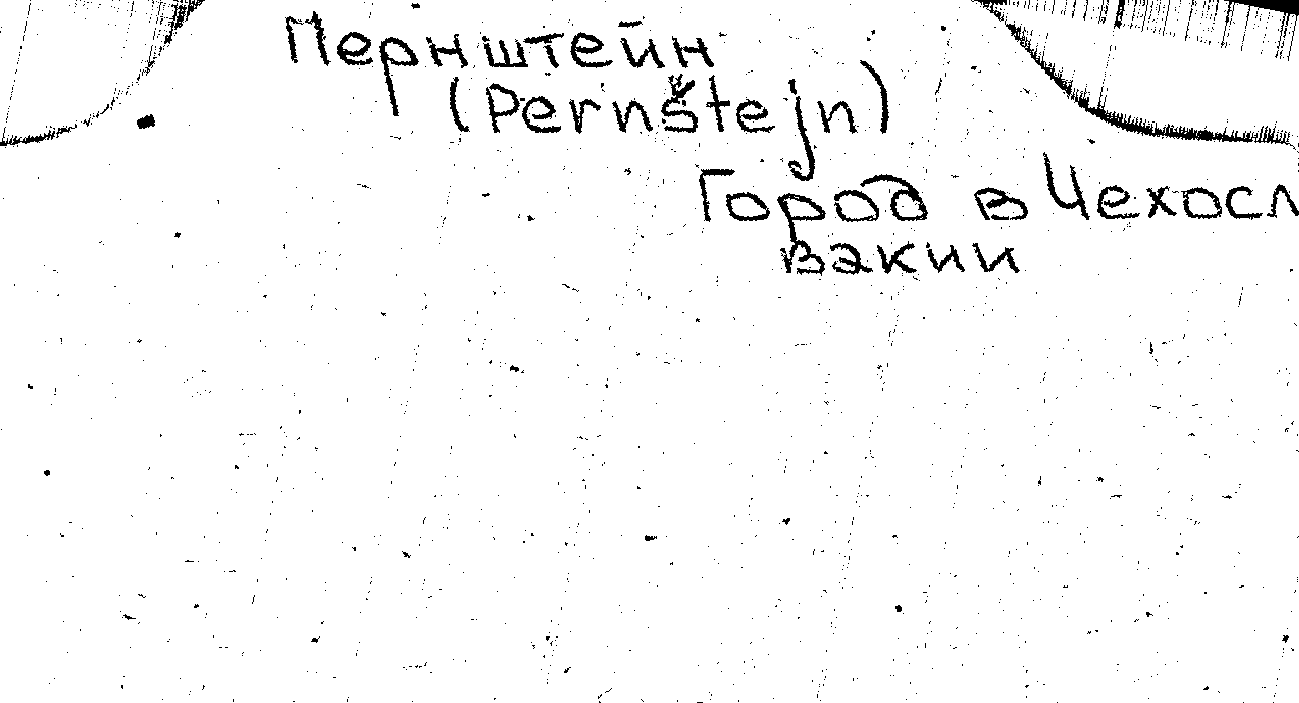 Пернштейн
(Pernštejn)
Город в Чехосл
вакии